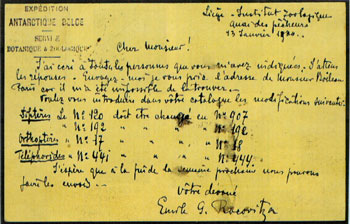 EXPÉDITION
ANTARCTIQUE BELGE
SERVICE
BOTANIQUE & ZOOLOGIQUE
Liège – Institut Zoologique
Quai des pêcheurs
13 Janvier
Cher Monsieur!
J'ai écri à toutes les personnes que vous m'avez indiquées. J'attens
les réponses. Envoyez-moi je vous prie l'adresse de Monsieur
Paris car il m'a été impossible de la trouver.
Voulez vous introduire dans votre catalogue les modifications suivantes:
Diptères le No 120 doit être changé en No 907
No 192 " " " " No 196
Orthoptères No 17 " " " " No 18
No 441 " " " " No 444
J'espère que à la fin de la semaine prochaine nous pouvons
faire les envois
Votre dévoué
Emile G. Racovitza